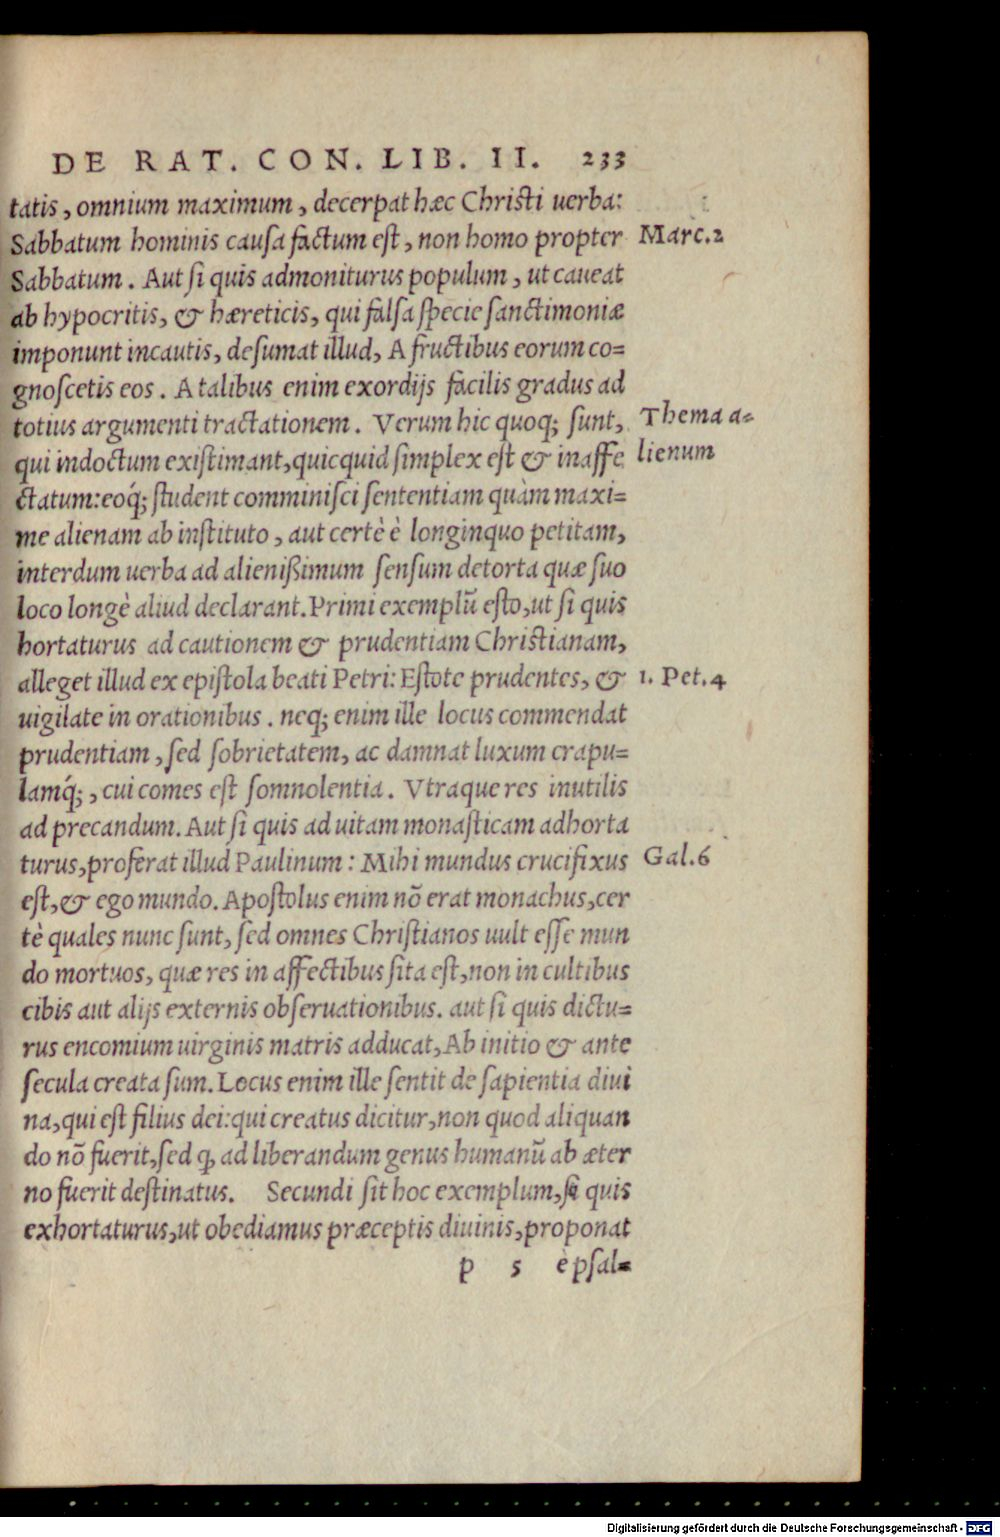 DE RAT. CON. LIB. II. 233
tatis, omnium maximum, decerpat hæc Christi uerba:
Sabbatum hominis causa factum est, non homo propter Marc.2
Sabbatum. Aut si quis admoniturus populum, ut caueat
ab hypocritis, & hæreticis, qui falsa specie sanctimoniæ
imponunt incautis, desumat illud, A fructibus eorum co=
gnoscetis eos. A talibus enim exordijs facilis gradus ad
totius argumenti tractationem. Verum hic quoq; sunt, Thema a-
qui indoctum existimant, quicquid simplex est & inaffe lienum
ctatum: eoq́; student comminisci sententiam quàm maxi=
me alienam ab instituto, aut certè è longinquo petitam,
interdum uerba ad alienißimum sensum detorta quæ suo
loco longè aliud declarant. Primi exemplũ esto, ut si quis
hortaturus ad cautionem & prudentiam Christianam,
alleget illud ex epistola beati Petri: Estote prudentes, & 1. Pet.4
uigilate in orationibus. neq; enim ille locus commendat
prudentiam, sed sobrietatem, ac damnat luxum crapu=
lamq́;, cui comes est somnolentia. Vtraque res inutilis
ad precandum. Aut si quis ad uitam monasticam adhorta
turus, proferat illud Paulinum: Mihi mundus crucifixus Gal.6
est, & ego mundo. Apostolus enim nõ erat monachus, cer
tè quales nunc sunt, sed omnes Christianos uult esse mun
do mortuos, quæ res in affectibus sita est, non in cultibus
cibis aut alijs externis obseruationibus. aut si quis dictu=
rus encomium uirginis matris adducat, Ab initio & ante
secula creata sum. Locus enim ille sentit de sapientia diui
na, qui est filius dei: qui creatus dicitur, non quod aliquan
do nõ fuerit, sed ꝙ ad liberandum genus humanũ ab æter
no fuerit destinatus. Secundi sit hoc exemplum, si quis
exhortaturus, ut obediamus præceptis diuinis, proponat
p 5 è psal=
Digitalisierung gefördert durch die Deutsche Forschungsgemeinschaft - DFG